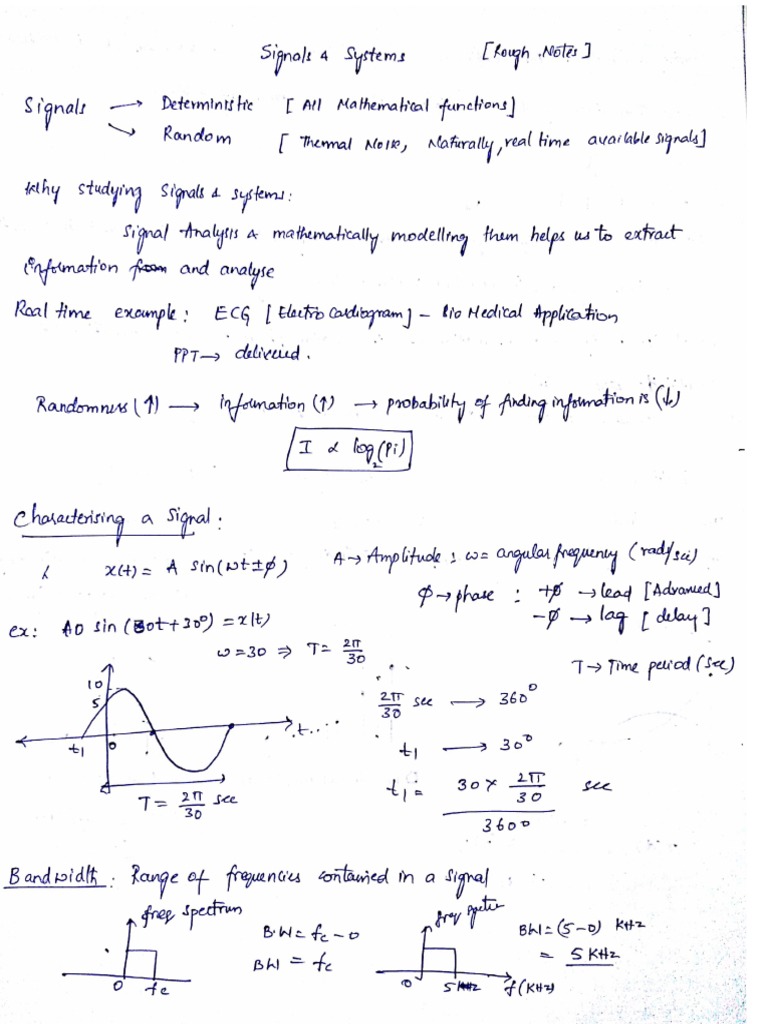 Signals & Systems [Rough Notes]
Signals → Deterministic [All Mathematical functions]
↘ Random [Thermal Noise, Naturally, real time available signals]
Why studying Signals & systems:
Signal Analysis & mathematically modelling them helps us to extract
information from and analyse
Real time example: ECG [Electro Cardiogram] - Bio Medical Application
PPT → delivered.
Randomness (↑) → information (↑) → probability of finding information is (↓)
I α log₂(Pi)
Characterising a signal:
x(t) = A sin(ωt ± φ) A → Amplitude : ω = angular frequency (rads/sec)
φ → phase : +φ → lead [Advanced]
-φ → lag [delay]
ex: 10 sin(30t + 30°) = x(t)
ω = 30 ⇒ T = 2π/30
T → Time period (sec)
10
5
t1 0 t....
T = 2π/30 sec
2π/30 sec → 360°
t1 → 30°
t1 = 30 × 2π/30 sec
360°
Bandwidth: Range of frequencies contained in a signal
freq spectrum
0 fc
B.W = fc - 0
BW = fc
freq
0 5 KHz f(KHz)
BW = (5-0) KHz
= 5 KHz